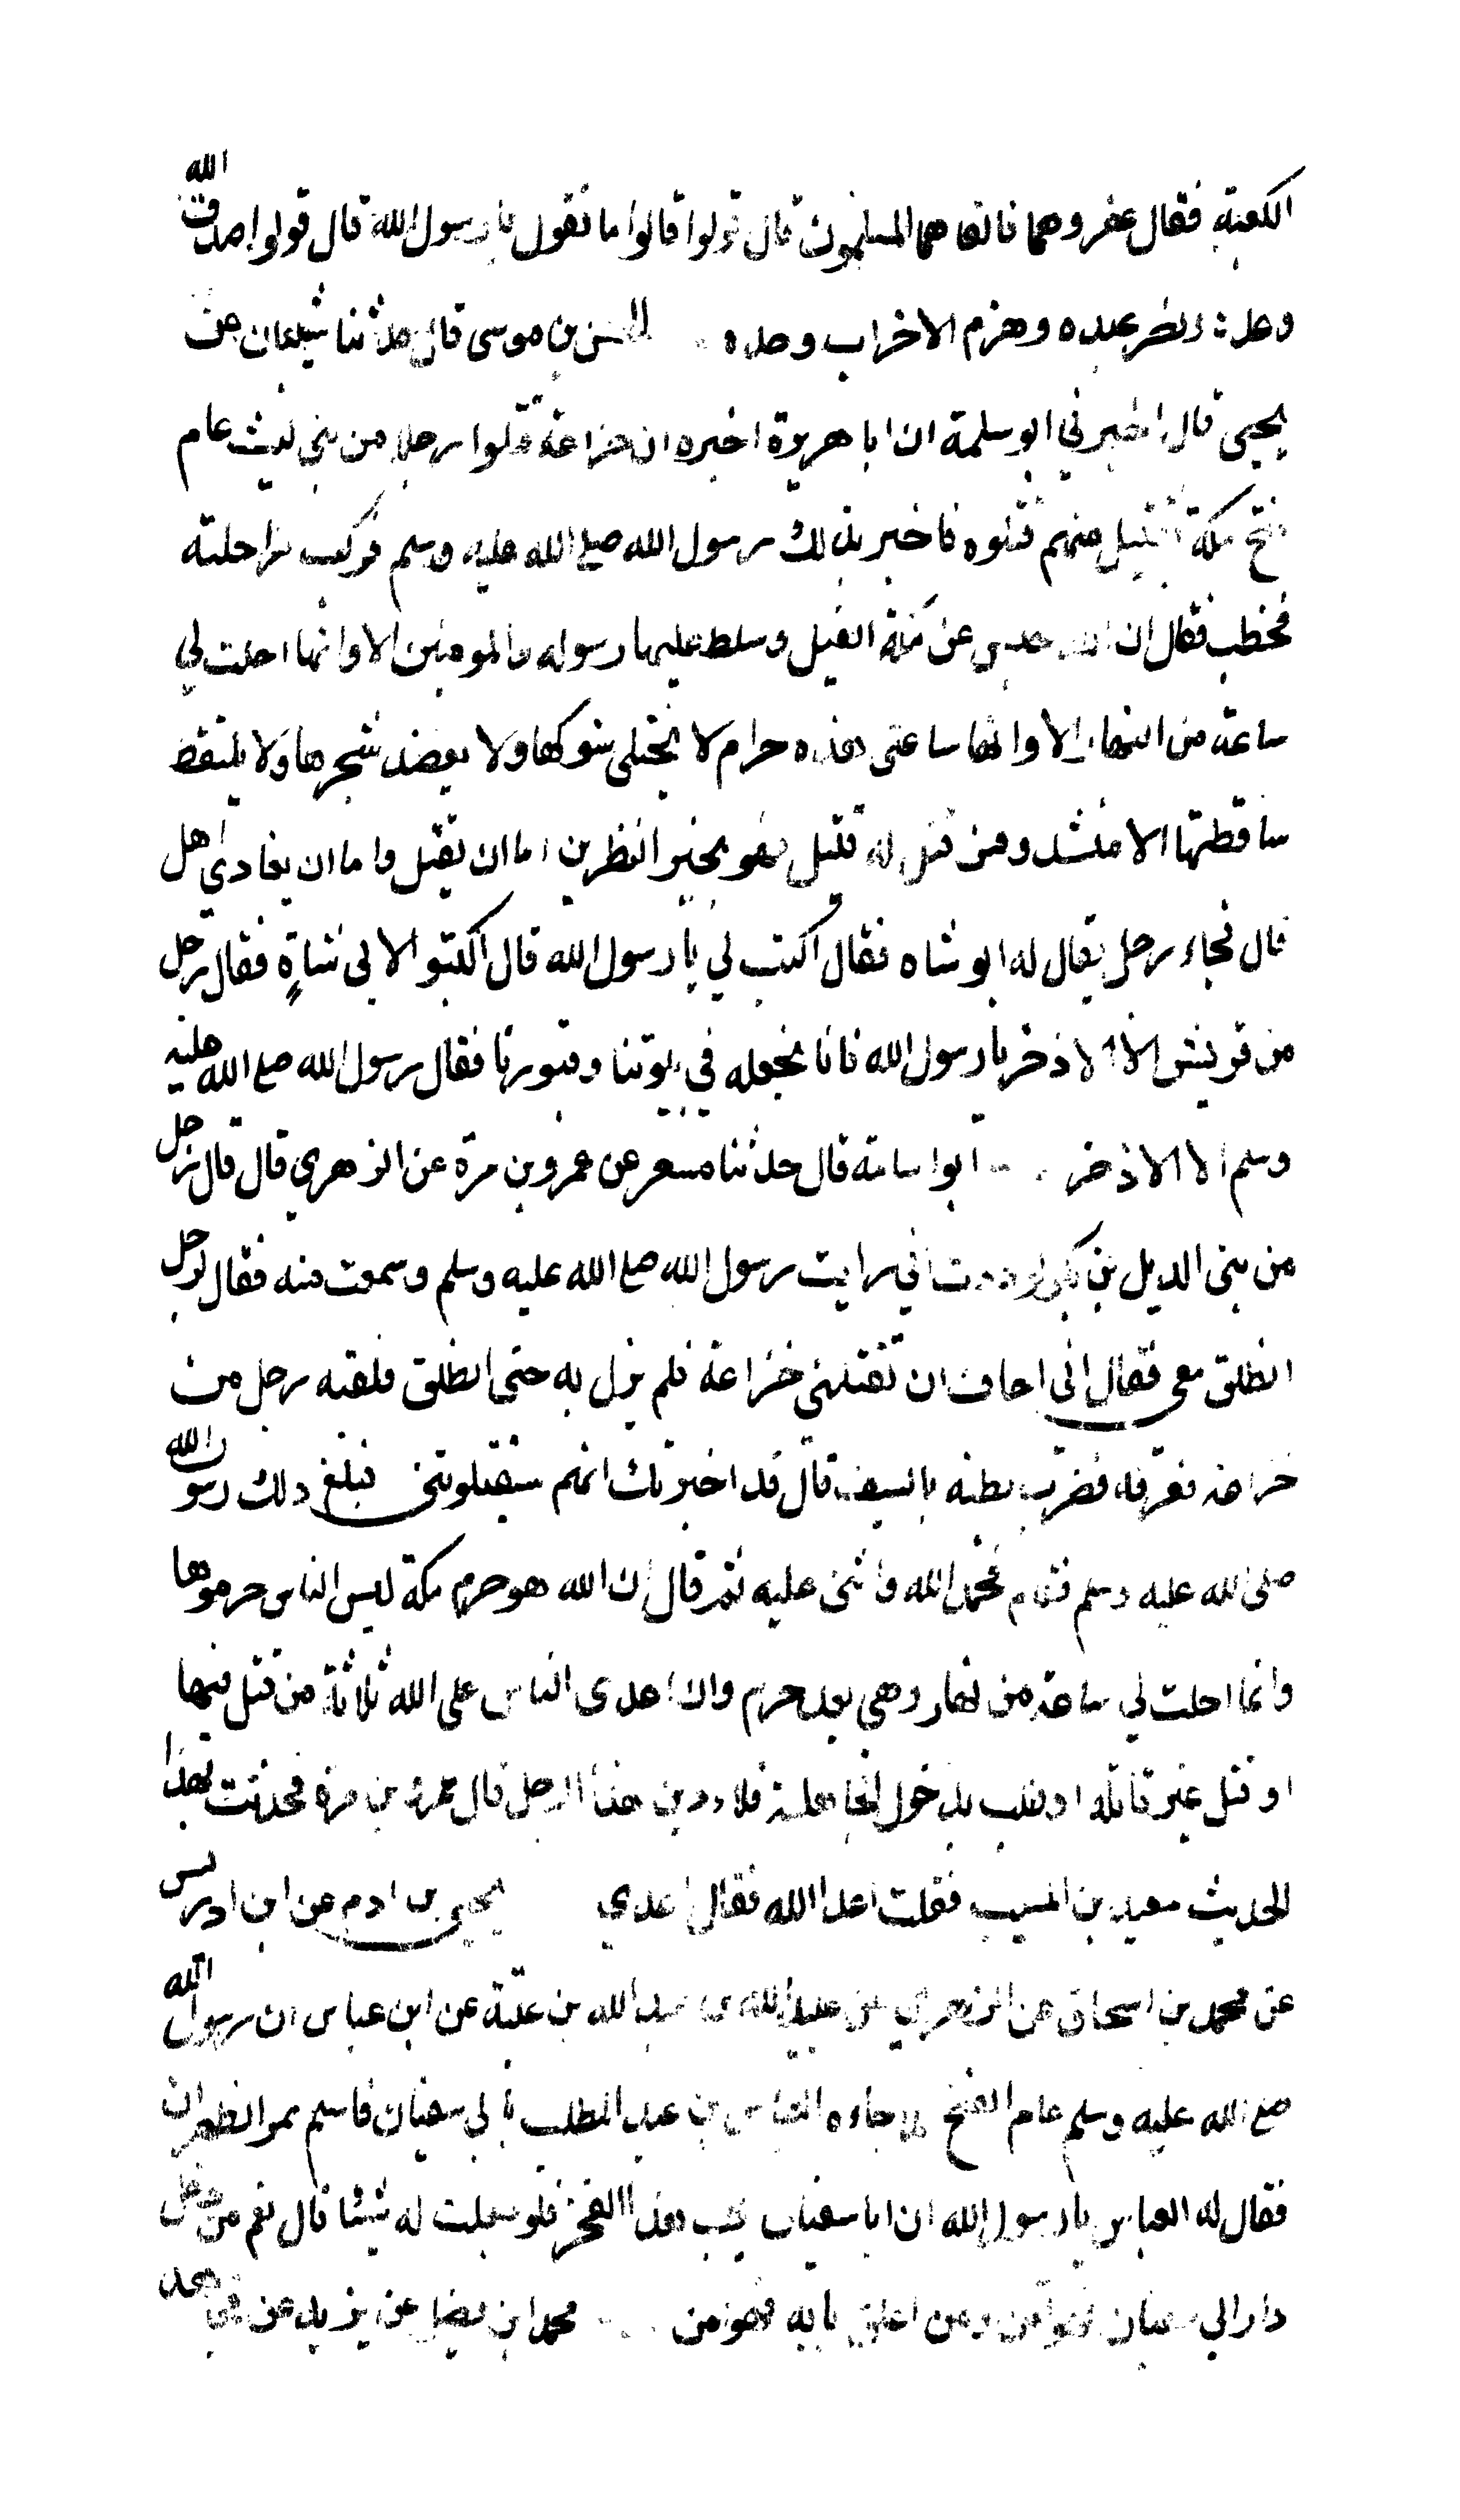 الكعبة فقال عفروهما فاتقاهما المسلمون قال قولوا قالوا ما نقول يا رسول الله قال قولوا صدق الله
وعده ونصر عبده وهزم الاحزاب وحده الحسن بن موسى قال حدثنا شيبان عن
يحيى قال اخبرني ابو سلمة ان ابا هريرة اخبره ان خزاعة قتلوا رجلا من بني ليث عام
فتح مكة بقتيل منهم قتلوه فاخبر بذلك رسول الله صلى الله عليه وسلم فركب راحلته
فخطب فقال ان الله حبس عن مكة الفيل وسلط عليها رسوله والمومنين الا وانها احلت لي
ساعة من النهار الا وانها ساعتي هذه حرام لا يختلى شوكها ولا يعضد شجرها ولا يلتقط
ساقطتها الا منشد ومن قتل له قتيل فهو بخير النظرين اما ان يقتل واما ان يفادي اهل
قال فجاء رجل يقال له ابو شاه فقال اكتب لي يا رسول الله قال اكتبوا لابي شاةٍ فقال رجل
من قريش الا الاذخر يا رسول الله فانا نجعله في بيوتنا وقبورنا فقال رسول الله صلى الله عليه
وسلم الا الاذخر ابو اسامة قال حدثنا مسعر عن عمرو بن مرة عن الزهري قال قال رجل
من بني الديل بن بكر لوددت اني رايت رسول الله صلى الله عليه وسلم وسمعت منه فقال لرجل
انطلق معي فقال اني اخاف ان تقتلني خزاعة فلم يزل به حتى انطلق فلقيه رجل من
خزاعة فعرفه فضرب بطنه بالسيف قال قد اخبرتك انهم سيقتلونني فبلغ ذلك رسول الله
صلى الله عليه وسلم فقام فحمد الله واثنى عليه ثم قال ان الله هو حرم مكة ليس الناس حرموها
وانما احلت لي ساعة من نهار وهي بعد حرم وان اعدى الناس على الله ثلاثة من قتل فيها
او قتل غير قاتله او طلب بذحول الجاهلية فلادين هذا الرجل قال عمرو بن مرة فحدثت بهذا
الحديث سعيد بن المسيب فقلت اعدا الله فقال اعدي يحيى بن ادم عن ابن ادريس
عن محمد بن اسحاق عن الزهري عن عبيد الله بن عبد الله بن عتبة عن ابن عباس ان رسول الله
صلى الله عليه وسلم عام الفتح جاءه العباس بن عبد المطلب بابي سفيان فاسلم بمر الظهران
فقال له العباس يا رسول الله ان ابا سفيان يحب هذا الفخر فلو جعلت له شيئا قال نعم من دخل
دار ابي سفيان فهو آمن ومن اغلق بابه فهو من محمد ابن فضيل عن يزيد عن مجاهد